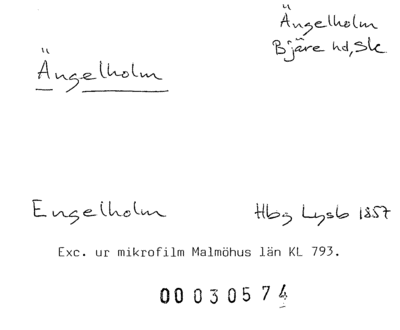 Ängelholm
Bjäre hd, Sk
Ängelholm
Engelholm
Hbg Lysb 1857
Exc. ur mikrofilm Malmöhus län KL 793.
00030574